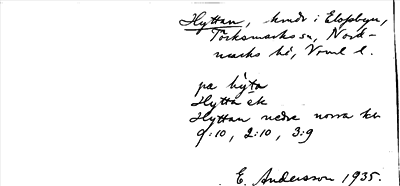 Hyttan, hmdr i Elofsbyn,
Torksmarks sn, Nord-
marks hd, Vrml l.
på hy̍ta
Hytta ek
Hyttan nedre norra
9:10, 2:10, 3:9
E. Andersson 1935.